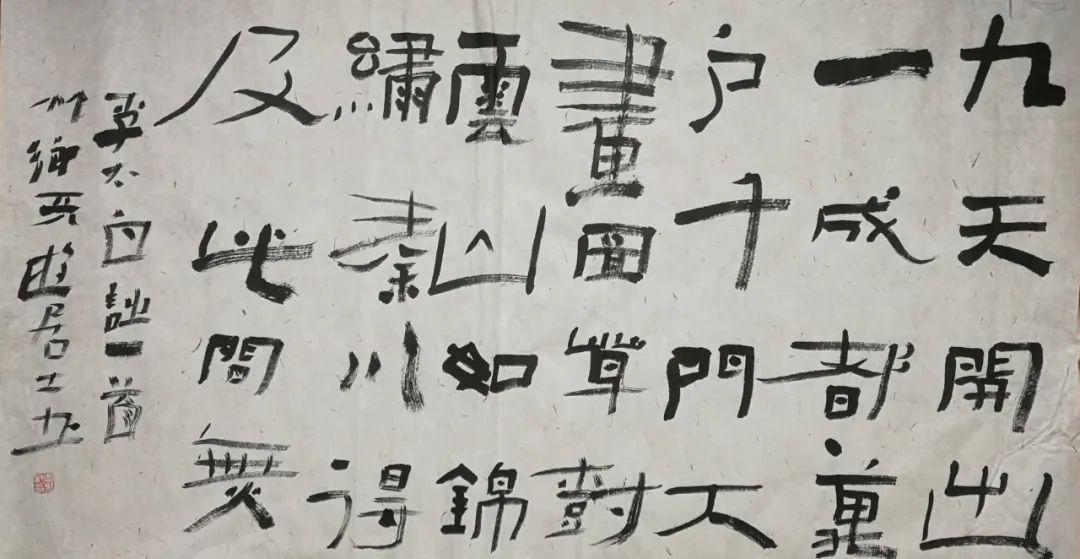 九天開出
一成都萬
户千門入
畫圖草樹
雲山如錦
繡秦川得
及此間無
李太白詩一首
竹鄉西居士